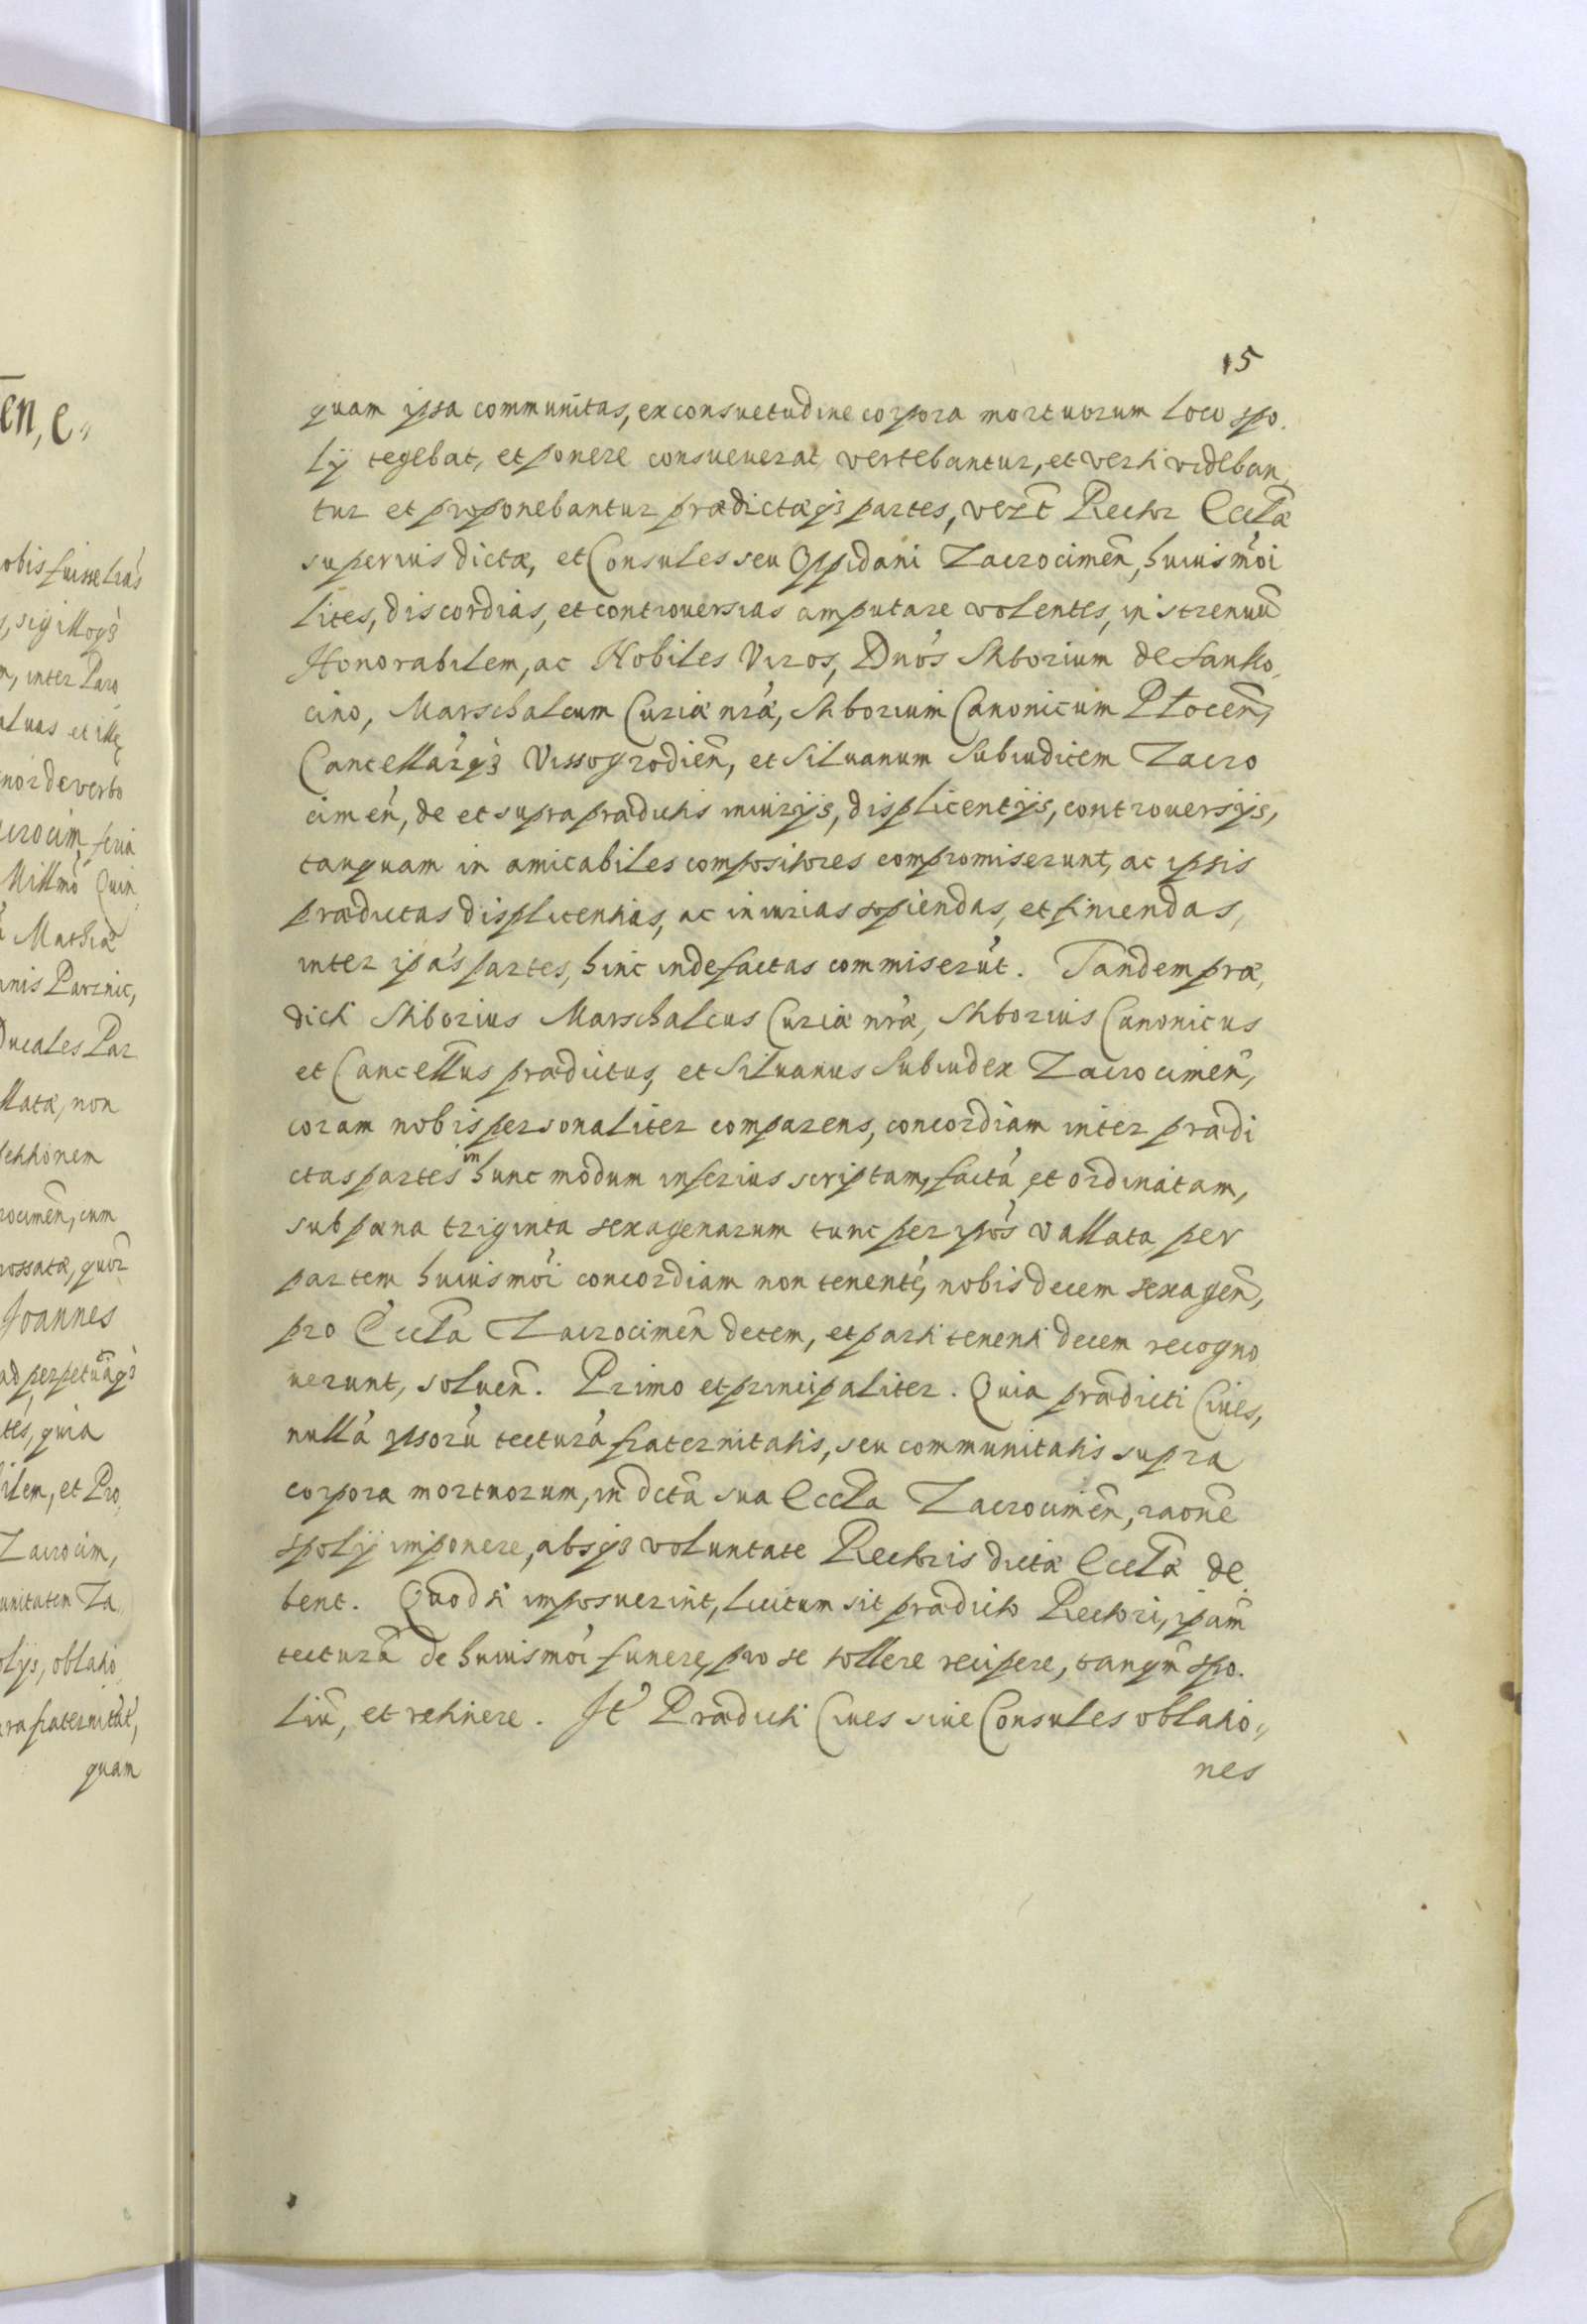 15
quam ipsa communitas, ex consuetudine corpora mortuorum loco spo.
lÿ tegebat, et ponere consueuerat vertebantur, et verti videban,
tur et proponebantur prædictæqз partes, vert̃ Rector Eccl̃æ
superius dictæ, et Consules seu Oppidani Zacrocimeñ, huiusmo̓i
lites, discordias, et controuersias amputare volentes, in strenuũ
Honorabilem, ac Nobiles Viros, Dno̓s Stiborium de Sanko,
cino, Marschalcum Curiæ nr̓æ, Stiborium Canonicum Ploceñ,
Cancellar̓qз Vissogrodieñ, et Siluanum Subiudicem Zacro
cimen̓, de et supra prædictis iniurÿs, displicentÿs, controuersÿs,
tanquam in amicabiles compositores compromiserunt, ac ipsis
prædictas displicentias, ac iniurias sopiendas, et finiendas,
inter ipa̓s partes, hinc inde factas commiseru̓t. Tandem præ,
dicti Stiborius Marschalcus Curiæ nr̓æ, Stiborius Canonicus
et Cancell̃us prædictus, et Siluanus Subiudex Zacrocimeñ,
coram nobis personaliter comparens, concordiam inter prædi
ctas partes in hunc modum inferius scriptam, facta̓ et ordinatam,
sub pæna triginta sexagenarum tunc per ipo̓s vallata per
partem huiusmo̓i concordiam non tenente̓, nobis decem sexageñ,
pro Eccl̃a Zacrocimeñ decem, et parti tenenti decem recogno
uerunt, solueñ. Primo et principaliter. Quia prædicti Ciues,
nulla̓ ipsoru̓ tectura̓ fraternitatis, seu communitatis supra
corpora mortuorum, in dctã sua Eccl̃a Zacrocimeñ, raonẽ
spolÿ imponere, absqз voluntate Rectoris dictæ Eccl̃æ de
bent. Quod si imposuerint, licitum sit prædicto Rectori, ipam̃
tecturã de huiusmo̓i funere, pro se tollere recipere, tanqm̃ spo.
liũ, et retinere. It̓ Prædicti Ciues siue Consules oblatio„
nes